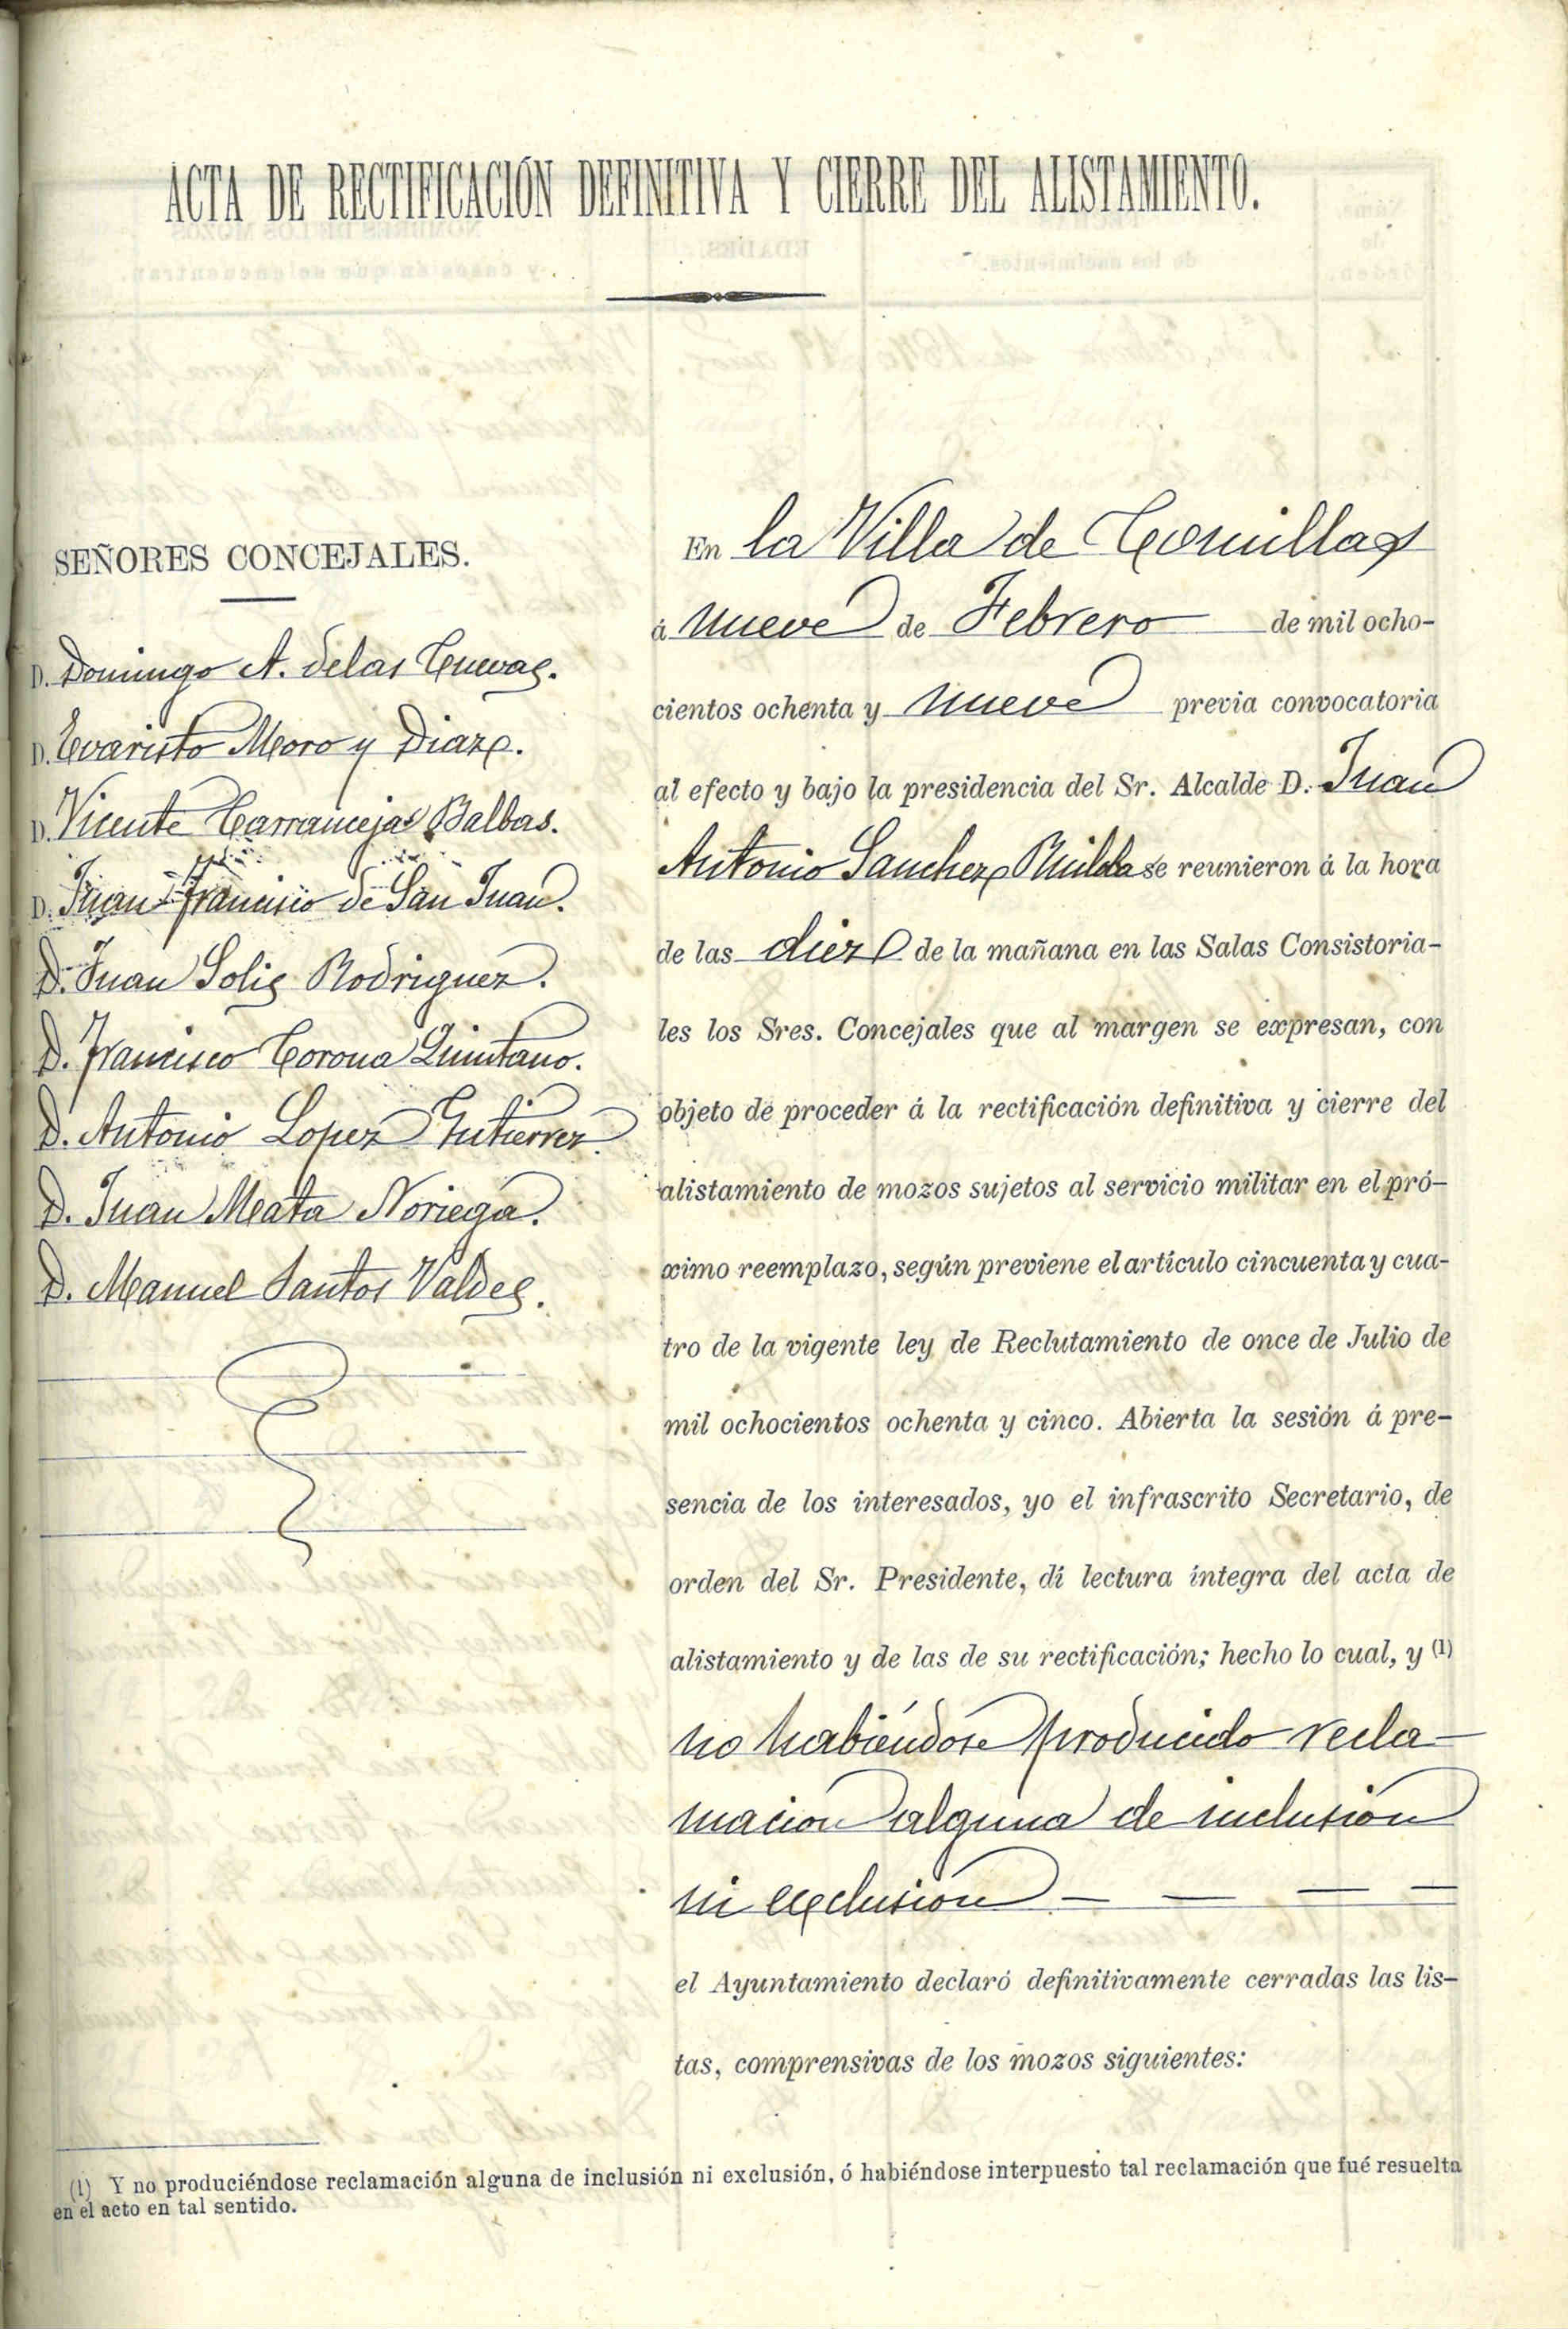 ACTA DE RECTIFICACIÓN DEFINITIVA Y CIERRE DEL ALISTAMIENTO.
SEÑORES CONCEJALES.
D. Domingo A. de las Cuevas.
D. Evaristo Moro y Diaz.
D. Vicente Carranceja Balbas.
D. Juan Francisco de San Juan.
D. Juan Solis Rodriguez.
D. Francisco Corona Quintano.
D. Antonio Lopez Gutierrez.
D. Juan Mata Noriega.
D. Manuel Santos Valdes.
En la Villa de Comillas
á nueve de Febrero de mil ocho-
cientos ochenta y nueve previa convocatoria
al efecto y bajo la presidencia del Sr. Alcalde D. Juan
Antonio Sanchez se reunieron á la hora
de las diez de la mañana en las Salas Consistoria-
les los Sres. Concejales que al margen se expresan, con
objeto de proceder á la rectificación definitiva y cierre del
alistamiento de mozos sujetos al servicio militar en el pró-
ximo reemplazo, según previene el artículo cincuenta y cua-
tro de la vigente ley de Reclutamiento de once de Julio de
mil ochocientos ochenta y cinco. Abierta la sesión á pre-
sencia de los interesados, yo el infrascrito Secretario, de
orden del Sr. Presidente, dí lectura íntegra del acta de
alistamiento y de las de su rectificación; hecho lo cual, y (1)
no habiéndose producido recla-
macion alguna de inclusión
ni exclusión — — — —
el Ayuntamiento declaró definitivamente cerradas las lis-
tas, comprensivas de los mozos siguientes:
(1) Y no produciéndose reclamación alguna de inclusión ni exclusión, ó habiéndose interpuesto tal reclamación que fué resuelta
en el acto en tal sentido.